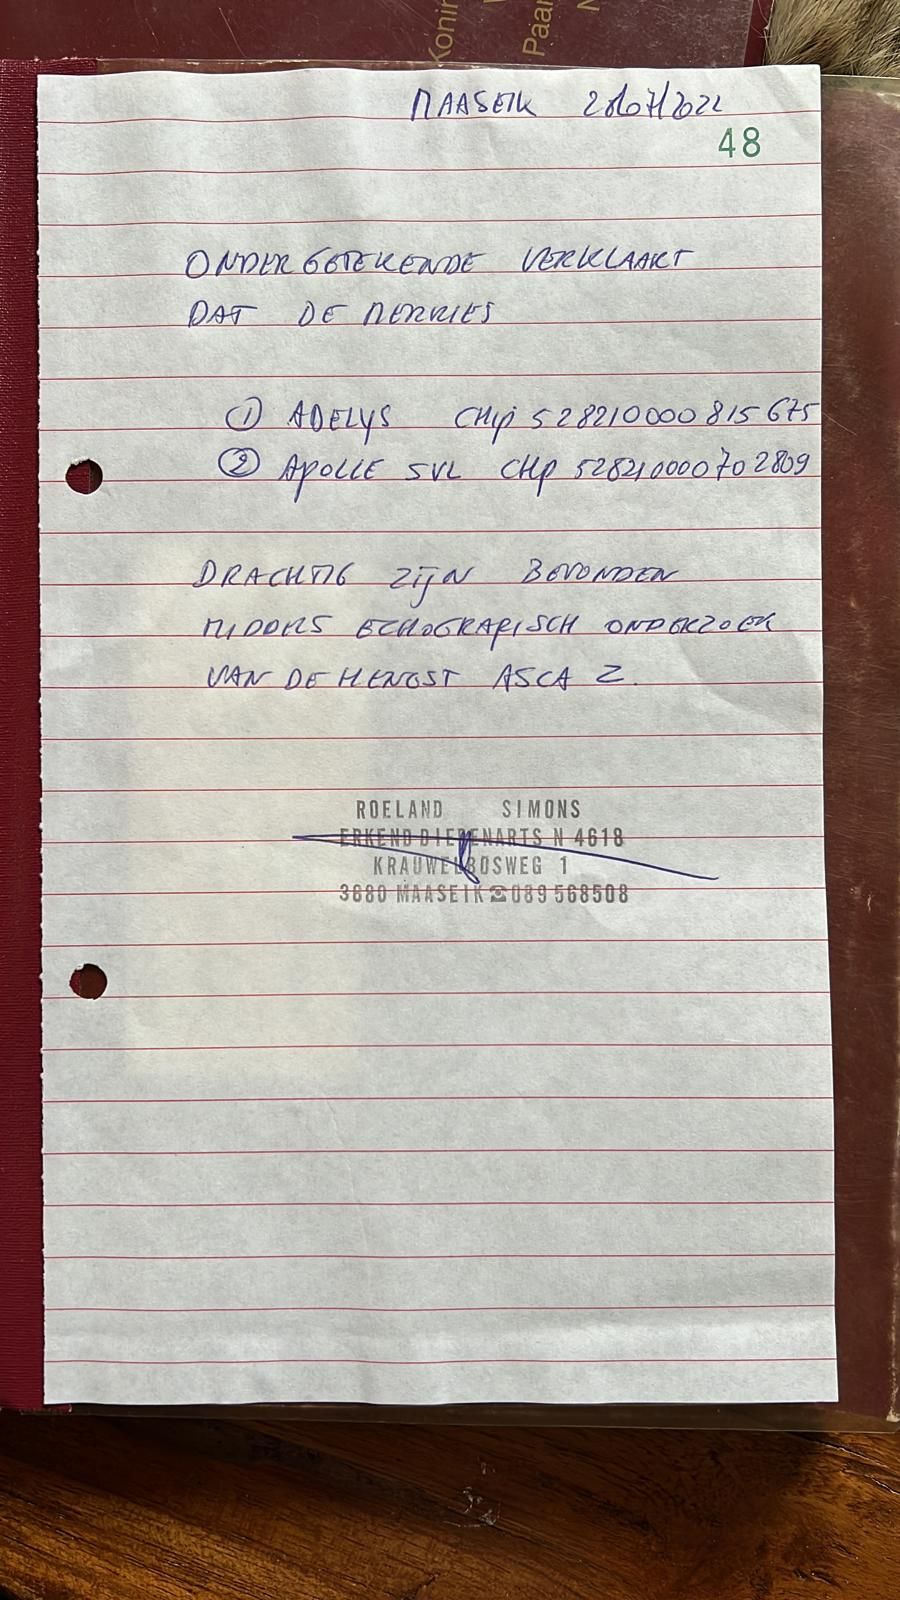 Konin
Paar
MAASEIK 28/07/2022
48
ONDERGETEKENDE VERKLAART
DAT DE MERRIES
① ADELYS CHIP 528210000815675
② APOLLE SVL CHIP 528210000702809
DRACHTIG ZIJN BEVONDEN
MIDDELS ECHOGRAFISCH ONDERZOEK
VAN DE HENGST ASCA Z.
ROELAND SIMONS
ERKEND DIERENARTS N 4618
KRAUWELBOSWEG 1
3680 MAASEIK ☎ 089 568508